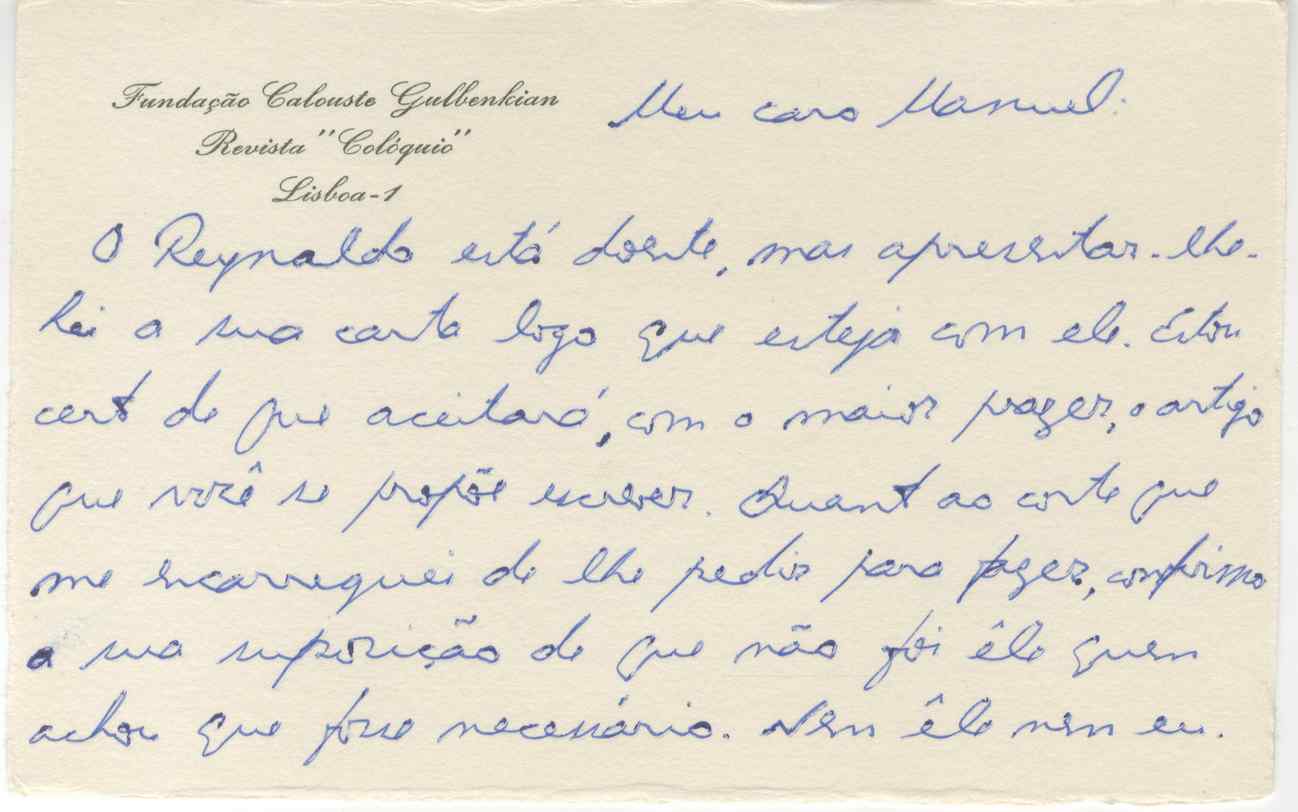 Fundação Calouste Gulbenkian
Revista "Colóquio"
Lisboa-1
Meu caro Manuel:
O Reynaldo está doente, mas apresentar-lhe-
hei a sua carta logo que esteja com ele. Estou
certo de que aceitará, com o maior prazer, o artigo
que você se propõe escrever. Quanto ao corte que
me encarreguei de lhe pedir para fazer, confirmo
a sua suposição de que não foi êle quem
achou que fosse necessário. Nem êle nem eu.